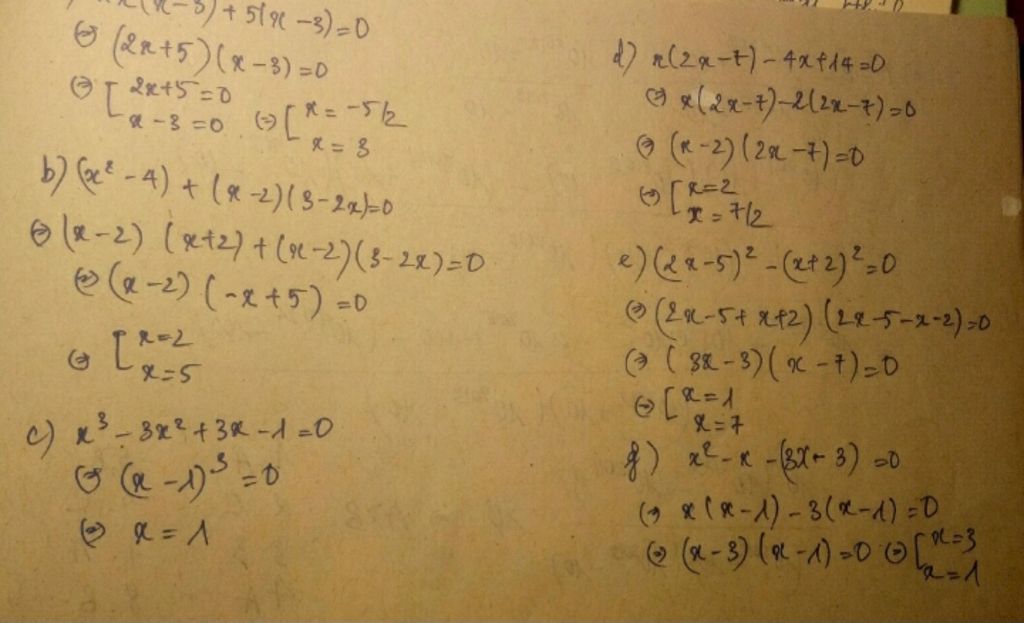 x(x-3)+5(x-3)=0
⇔ (2x+5)(x-3)=0
⇔ [ 2x+5=0
x-3=0 ⇔ [ x=-5/2
x=3
b) (x²-4)+(x-2)(3-2x)=0
⇔ (x-2)(x+2)+(x-2)(3-2x)=0
⇔ (x-2)(-x+5)=0
⇔ [ x=2
x=5
c) x³-3x²+3x-1=0
⇔ (x-1)³=0
⇔ x=1
d) x(2x-7)-4x+14=0
⇔ x(2x-7)-2(2x-7)=0
⇔ (x-2)(2x-7)=0
⇔ [ x=2
x=7/2
e) (2x-5)²-(x+2)²=0
⇔ (2x-5+x+2)(2x-5-x-2)=0
⇔ (3x-3)(x-7)=0
⇔ [ x=1
x=7
f) x²-x-(3x-3)=0
⇔ x(x-1)-3(x-1)=0
⇔ (x-3)(x-1)=0 ⇔ [ x=3
x=1